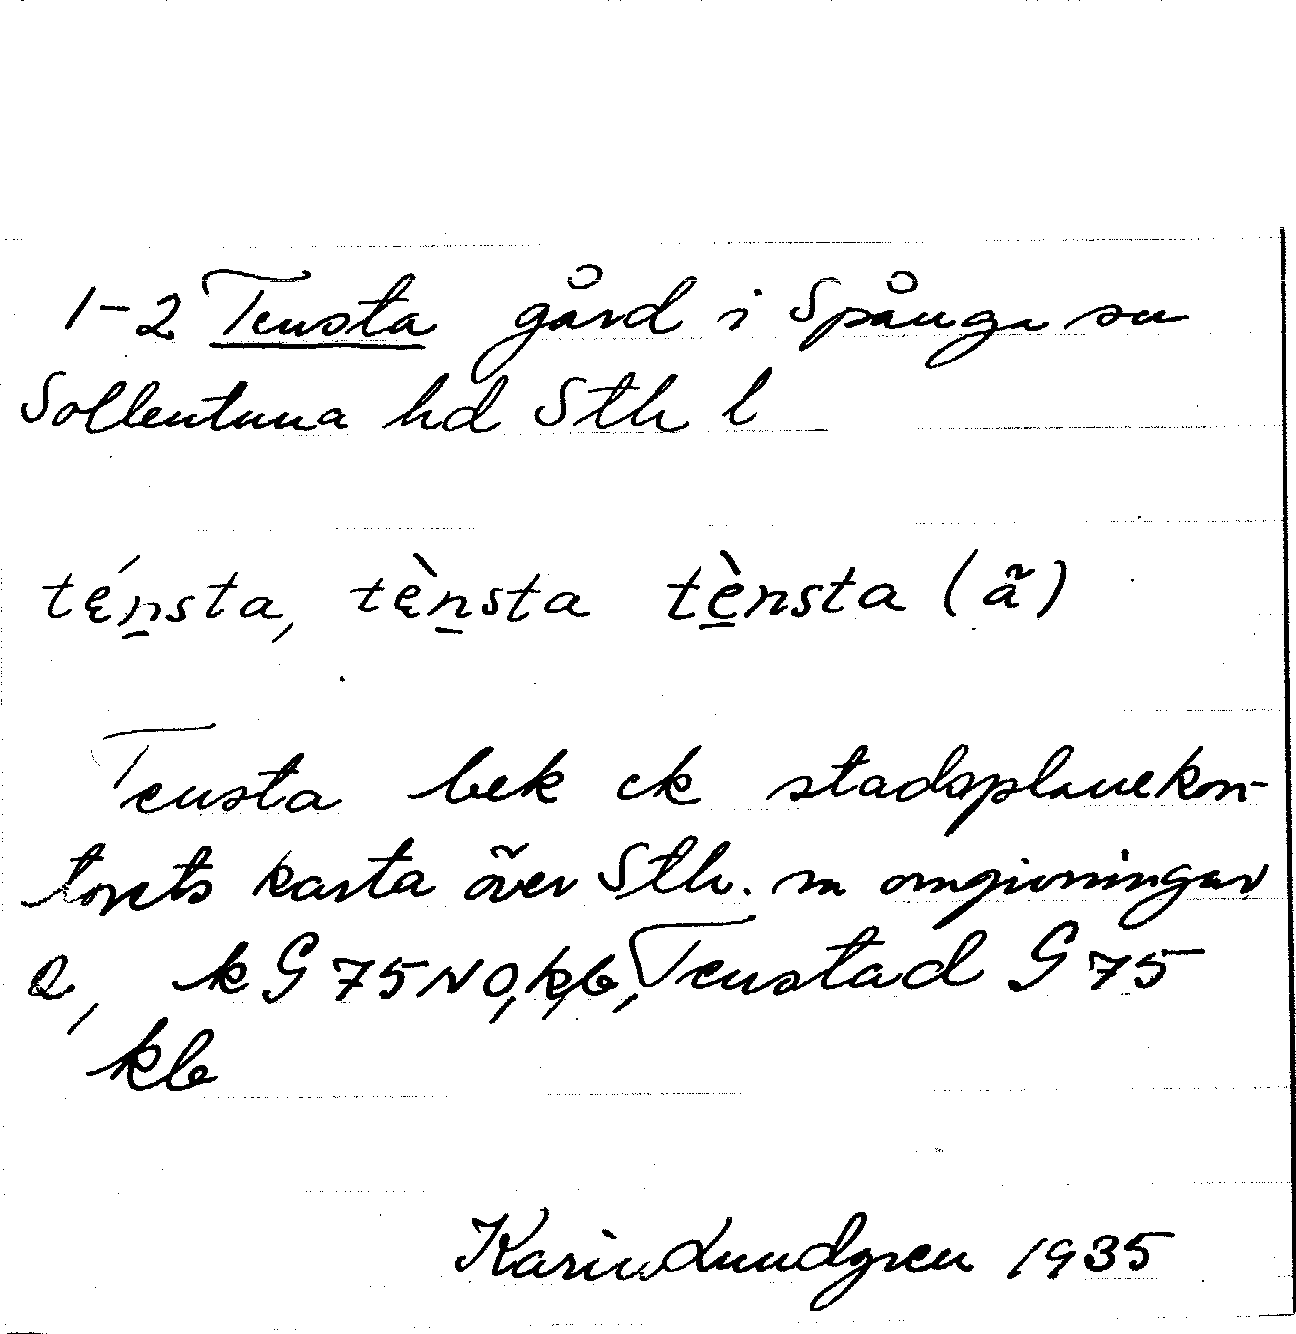 1-2 Tensta gård i Spånga sn
Sollentuna hd Sth l
tę́n̲sta, tę̀n̲sta tè̲nsta (ã)
Tensta bek ek stadsplanekon-
torets karta över Sth. m omgivningar
a, k G 75 NO, k, b, Tenstad G 75
kb
Karin Lundgren 1935